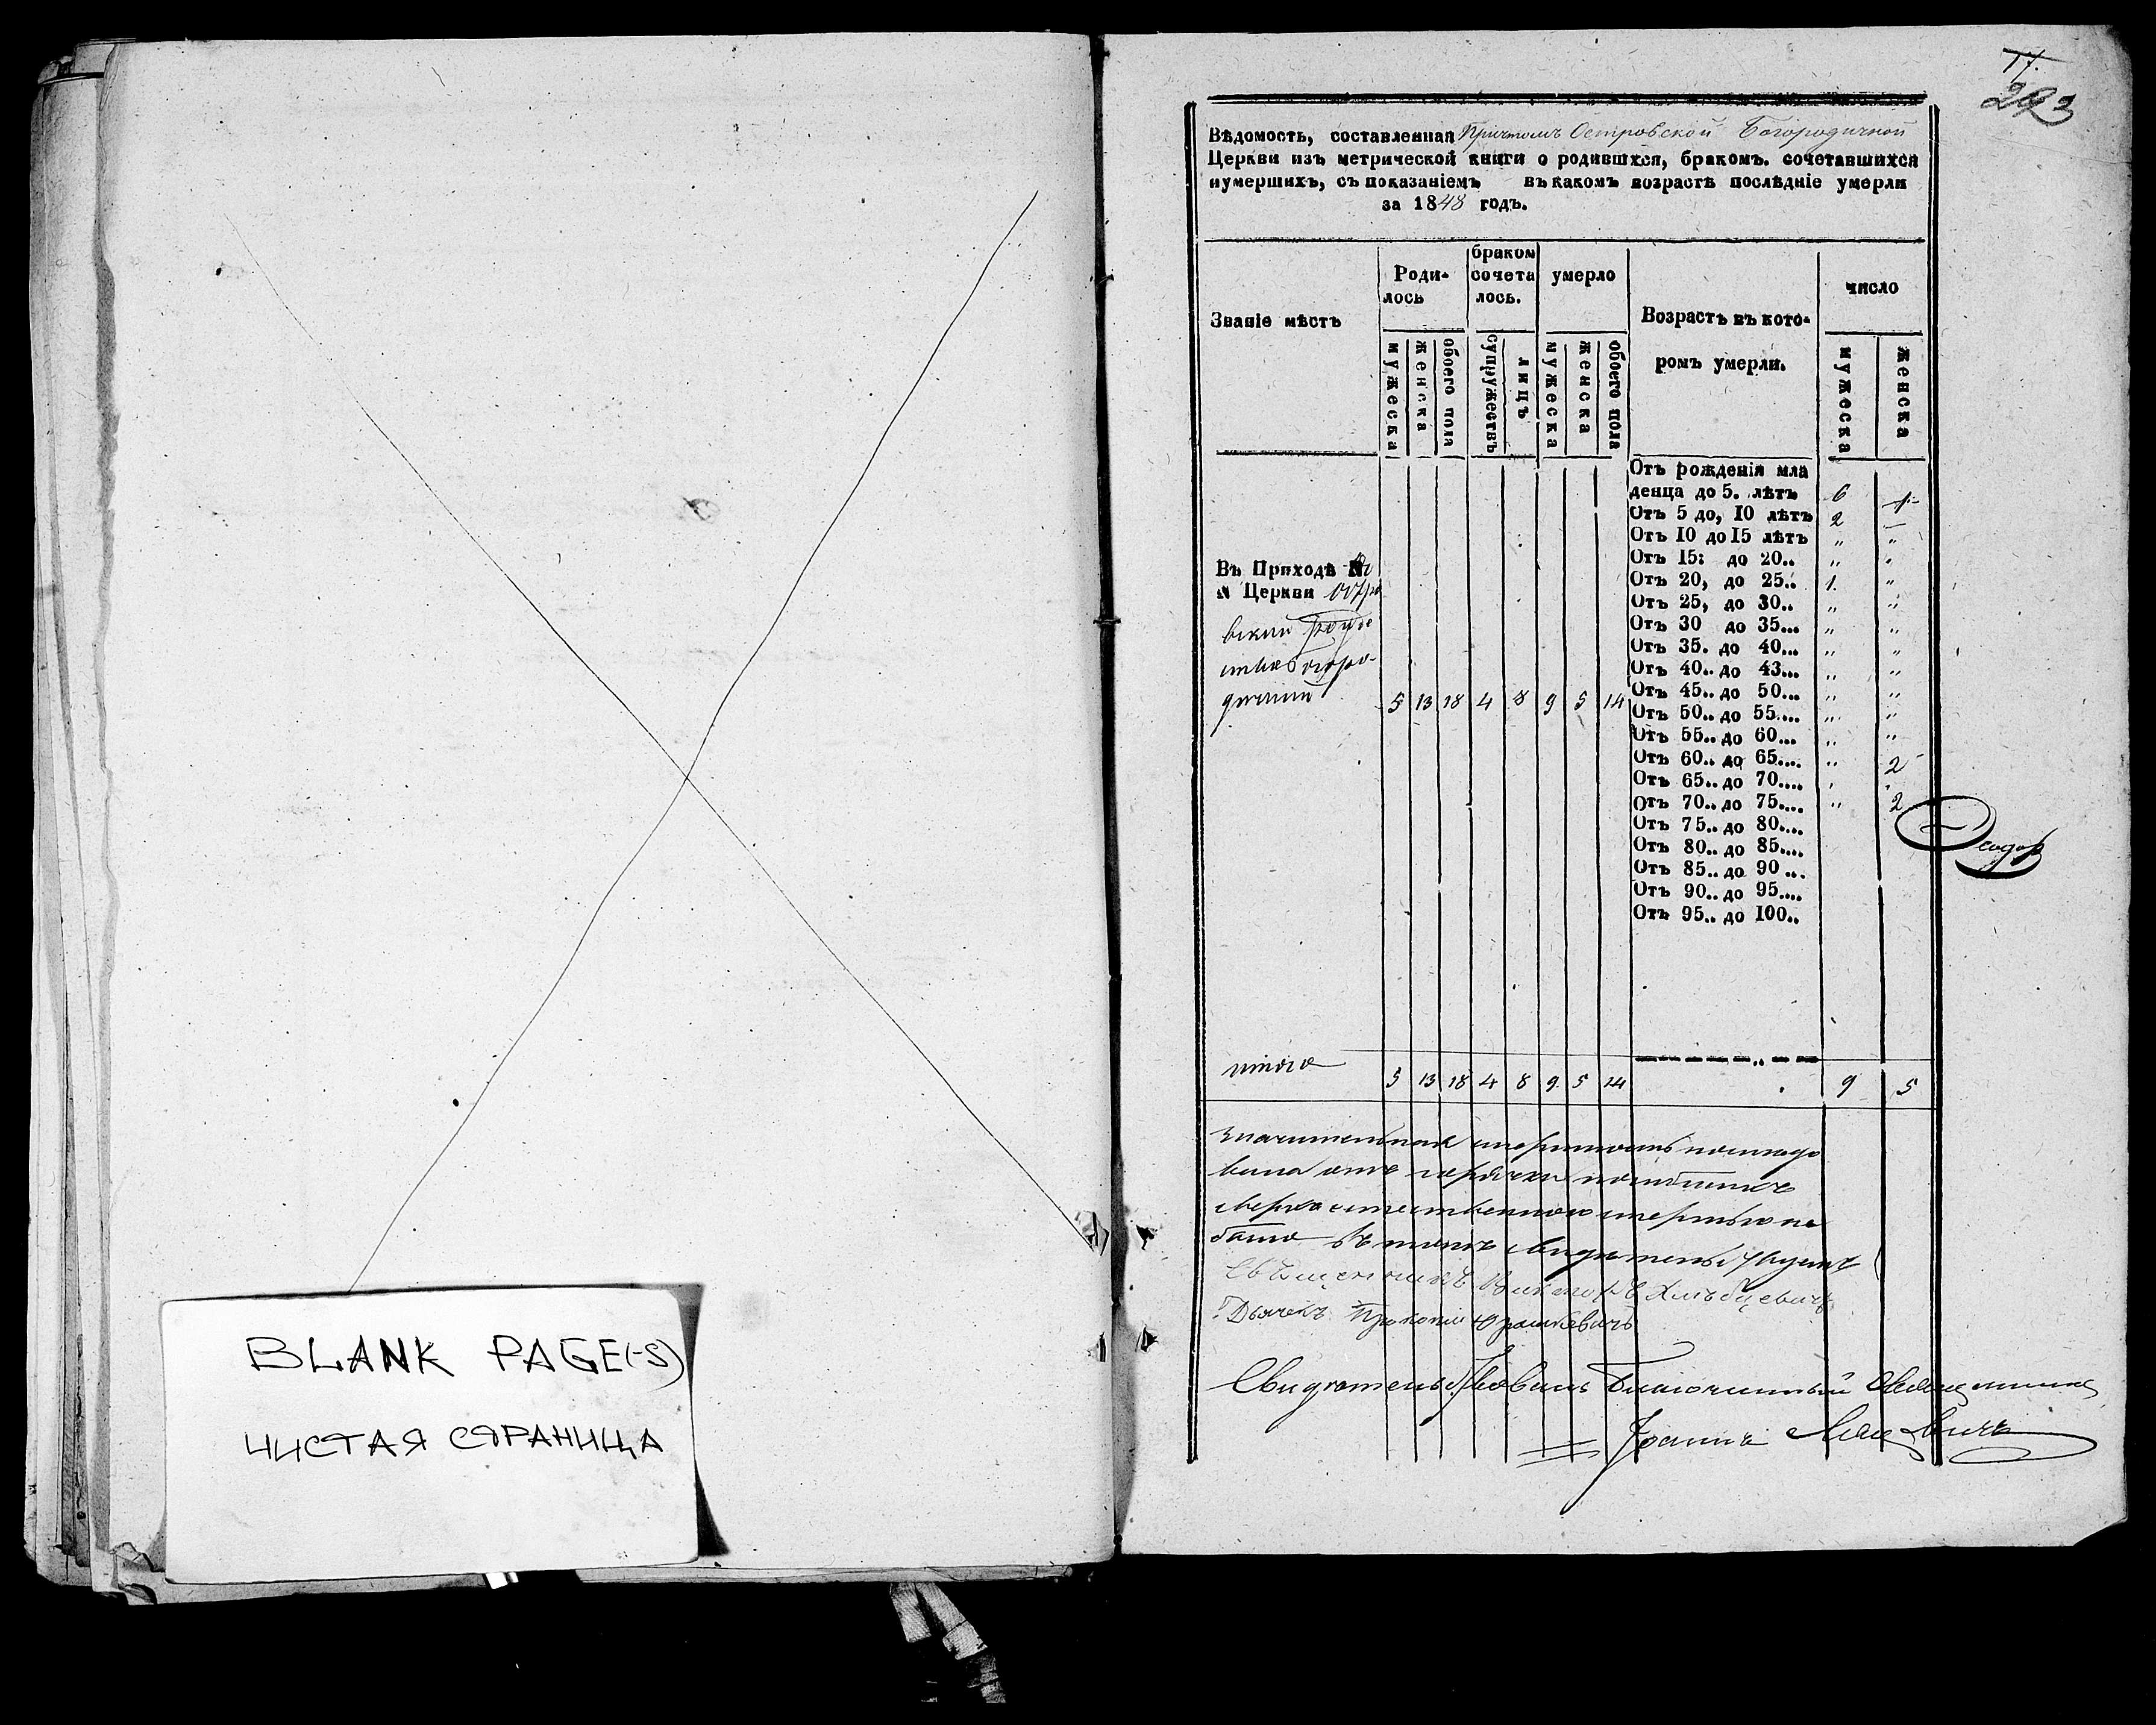 BLANK PAGE(-S)
ЧИСТАЯ СТРАНИЦА
17.
293
Вѣдомость, составленная Причтомъ Островской Богородичной
Церкви изъ метрической книги о родившхся, бракомъ. сочетавшихся
иумершихъ, съ показаніемъ въ какомъ возрастѣ послѣдніе умерли
за 1848 годъ.
Званіе мѣстъ
Роди-
лось
браком
сочета
лось.
умерло
Возрастъ въ кото-
ромъ умерли.
число
мужеска
женска
обоего пола
супружествъ
лицъ
мужеска
женска
обоего пола
мужеска
женска
Отъ рожденія мла
денца до 5. лѣтъ 6 1
Отъ 5 до, 10 лѣтъ 2 —
Отъ 10 до 15 лѣтъ „ „
Отъ 15: до 20.. „ „
Отъ 20, до 25.. 1. „
Отъ 25, до 30.. „ „
Отъ 30 до 35... „ „
Отъ 35. до 40... „ „
Отъ 40.. до 43... „ „
Отъ 45.. до 50... „ „
Отъ 50.. до 55.... „ „
Отъ 55.. до 60... „ „
Отъ 60.. до 65.... „ 2
Отъ 65.. до 70.... „ „
Отъ 70.. до 75.... „ 2
Отъ 75.. до 80....
Отъ 80.. до 85....
Отъ 85.. до 90 ...
Отъ 90.. до 95....
Отъ 95.. до 100..
Въ Приходѣ
Церкви Остро
вской
Богоро-
дичной
5 13 18 4 8 9 5 14
Ѳеодор
итого 5 13 18 4 8 9 5 14 9 5
значительная смертность послѣдо
вала отъ горячки погибшихъ
сверхъ естественною смертью не
было въ томъ свидѣтельствуемъ
Священникъ Викторъ Хлѣбцевичъ
Дьячекъ Прокопій Юрашкевичъ
Свидѣтельствовалъ Благочинный Священникъ
Іоаннъ